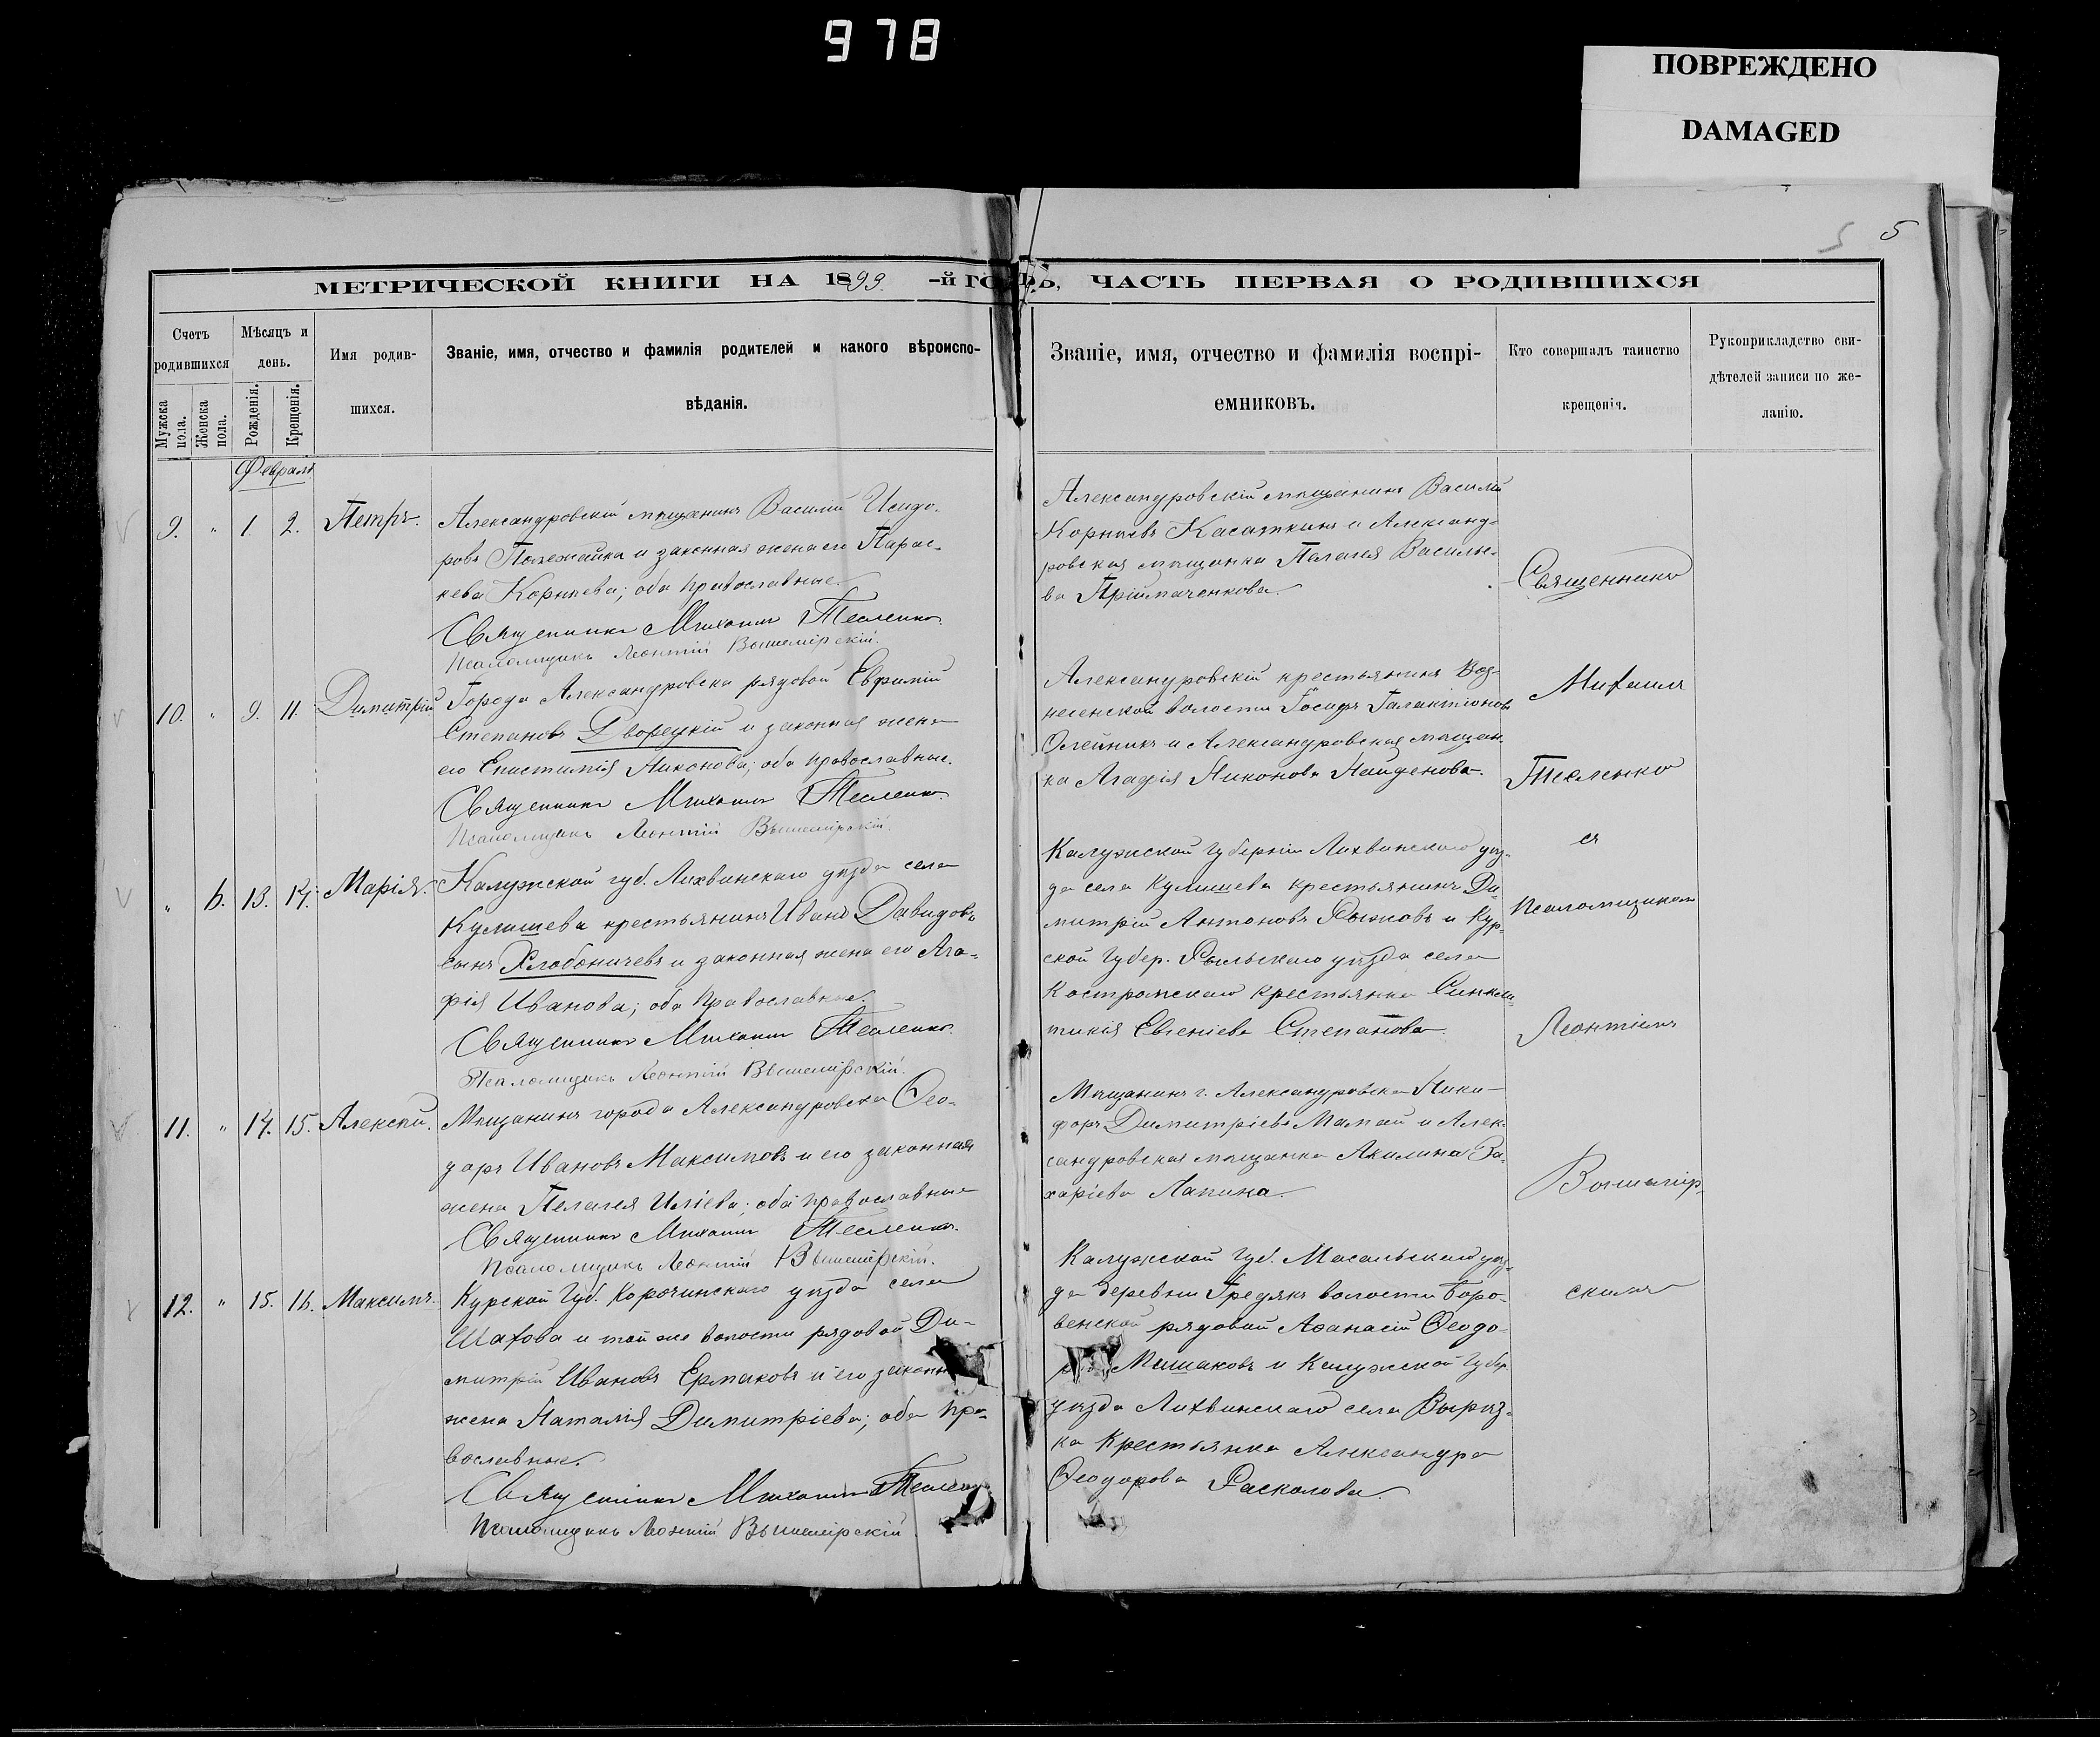 978
ПОВРЕЖДЕНО
DAMAGED
5 5
МЕТРИЧЕСКОЙ КНИГИ НА 1899 -й ГОДЪ, ЧАСТЬ ПЕРВАЯ О РОДИВШИХСЯ
Счетъ родившихся
Мужска пола.
Женска пола.
Мѣсяцъ и день.
Рожденія.
Крещенія.
Имя родив-
шихся.
Званіе, имя, отчество и фамилія родителей и какого вѣроиспо-
вѣданія.
Званіе, имя, отчество и фамилія воспрі-
емниковъ.
Кто совершалъ таинство
крещенія.
Рукоприкладство сви-
дѣтелей записи по же-
ланію.
Февраль
9. " 1. 2. Петръ.
Александровскій мѣщанинъ Василій Исидо-
ровъ Полежайка и законная жена его Парас-
кева Корнѣева; оба православные.
Священникъ Михаилъ Тесленко.
Псаломщикъ Леонтій Вышемірскій.
Александровскій мѣщанинъ Василій
Корнѣевъ Касаткинъ и Александ-
ровская мѣщанка Пелагея Василье-
ва Пріймаченкова.
10. " 9. 11. Димитрій
Города Александровска рядовой Евфимій
Степановъ Дворецкій и законная жена
его Епистимія Никонова; оба православные.
Священникъ Михаилъ Тесленко.
Псаломщикъ Леонтій Вышемірскій.
Александровскій крестьянинъ Воз-
несенской волости Іосифъ Галактіоновъ
Олейникъ и Александровская мѣщан-
ка Агафія Никонова Найденова.
" 6. 13. 14. Марія.
Калужской губ. Лихвинскаго уѣзда села
Кулишева крестьянинъ Иванъ Давидовъ
сынъ Хлабоничевъ и законная жена его Ага-
фія Иванова; оба православные.
Священникъ Михаилъ Тесленко.
Псаломщикъ Леонтій Вышемірскій.
Калужской губерніи Лихвинскаго уѣз-
да села Кулишева крестьянинъ Ди-
митрій Антоновъ Рыжовъ и Кур-
ской Губер. Рыльскаго уѣзда села
Костромскаго крестьянка Синкли-
тикія Евгеніева Степанова.
11. " 14. 15. Алексѣй.
Мѣщанинъ города Александровска Ѳео-
доръ Ивановъ Максимовъ и его законная
жена Пелагея Иліева; оба православные
Священникъ Михаилъ Тесленко.
Псаломщикъ Леонтій Вышемірскій.
Мѣщанинъ г. Александровска Ники-
форъ Димитріевъ Мамай и Алек-
сандровская мѣщанка Акилина За-
харіева Лапина.
12. " 15. 16. Максимъ.
Курской Губ. Корочинскаго уѣзда села
Шахова и той же волости рядовой Ди-
митрій Ивановъ Ермаковъ и его законн
жена Наталія Димитріева; оба пра-
вославные.
Священникъ Михаилъ Тесленко
Псаломщикъ Леонтій Вышемірскій
Калужской Губ. Масальскаго уѣз-
да деревни Гредякъ волости Боро-
венской рядовой Аѳанасій Ѳеодо-
Мишаковъ и Калужской Губер.
уѣзда Лихвинскаго села Вырѣз-
ка крестьянка Александра
Ѳеодорова Расколова.
Священникъ
Михаилъ
Тесленко
съ
Псаломщикомъ
Леонтіемъ
Вышемір-
скимъ